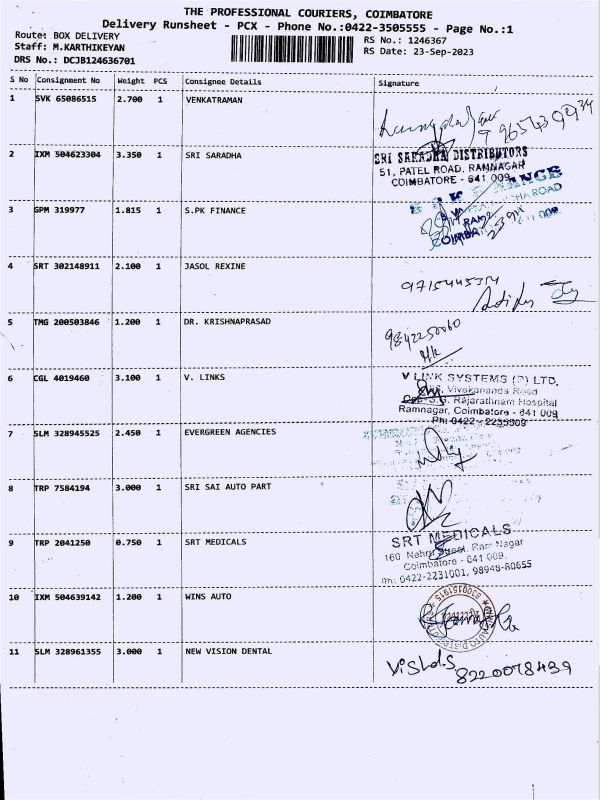 THE PROFESSIONAL COURIERS, COIMBATORE
Delivery Runsheet - PCX - Phone No.:0422-3505555 - Page No.:1
Route: BOX DELIVERY
Staff: M.KARTHIKEYAN
DRS No.: DCJB124636701
RS No.: 1246367
RS Date: 23-Sep-2023
S No Consignment No Weight PCS Consignee Details Signature
1 SVK 65086515 2.700 1 VENKATRAMAN
2 IXM 504623304 3.350 1 SRI SARADHA
SRI SARADHA DISTRIBUTORS
51, PATEL ROAD, RAMNAGAR
COIMBATORE - 641 009
3 GPM 319977 1.815 1 S.PK FINANCE
4 SRT 302148911 2.100 1 JASOL REXINE
5 TMG 200503846 1.200 1 DR. KRISHNAPRASAD
9842250060
6 CGL 4019460 3.100 1 V. LINKS
V LINK SYSTEMS (P) LTD.
Vivekananda Road
Rajarathnam Hospital
Ramnagar, Coimbatore - 641 009
Ph: 0422 - 2235509
7 SLM 328945525 2.450 1 EVERGREEN AGENCIES
8 TRP 7584194 3.000 1 SRI SAI AUTO PART
9 TRP 2041250 0.750 1 SRT MEDICALS
SRT MEDICALS
160 Nehru Street, Ram Nagar
Coimbatore - 641 009.
Ph: 0422-2231001, 98948-80655
10 IXM 504639142 1.200 1 WINS AUTO
11 SLM 328961355 3.000 1 NEW VISION DENTAL
8220078439